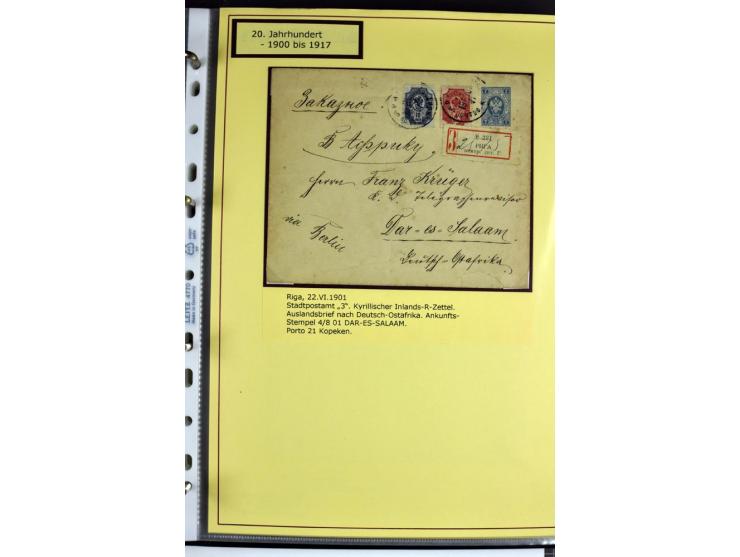 20. Jahrhundert
- 1900 bis 1917
Заказное.
В Африку
Herrn Franz Krüger
K. D. Telegraphenrevisor
via Berlin
Dar-es-Salaam.
Deutsch-Ostafrika.
РИГА
Riga, 22.VI.1901
Stadtpostamt „3“. Kyrillischer Inlands-R-Zettel.
Auslandsbrief nach Deutsch-Ostafrika. Ankunfts-
Stempel 4/8 01 DAR-ES-SALAAM.
Porto 21 Kopeken.
LEITZ 4770